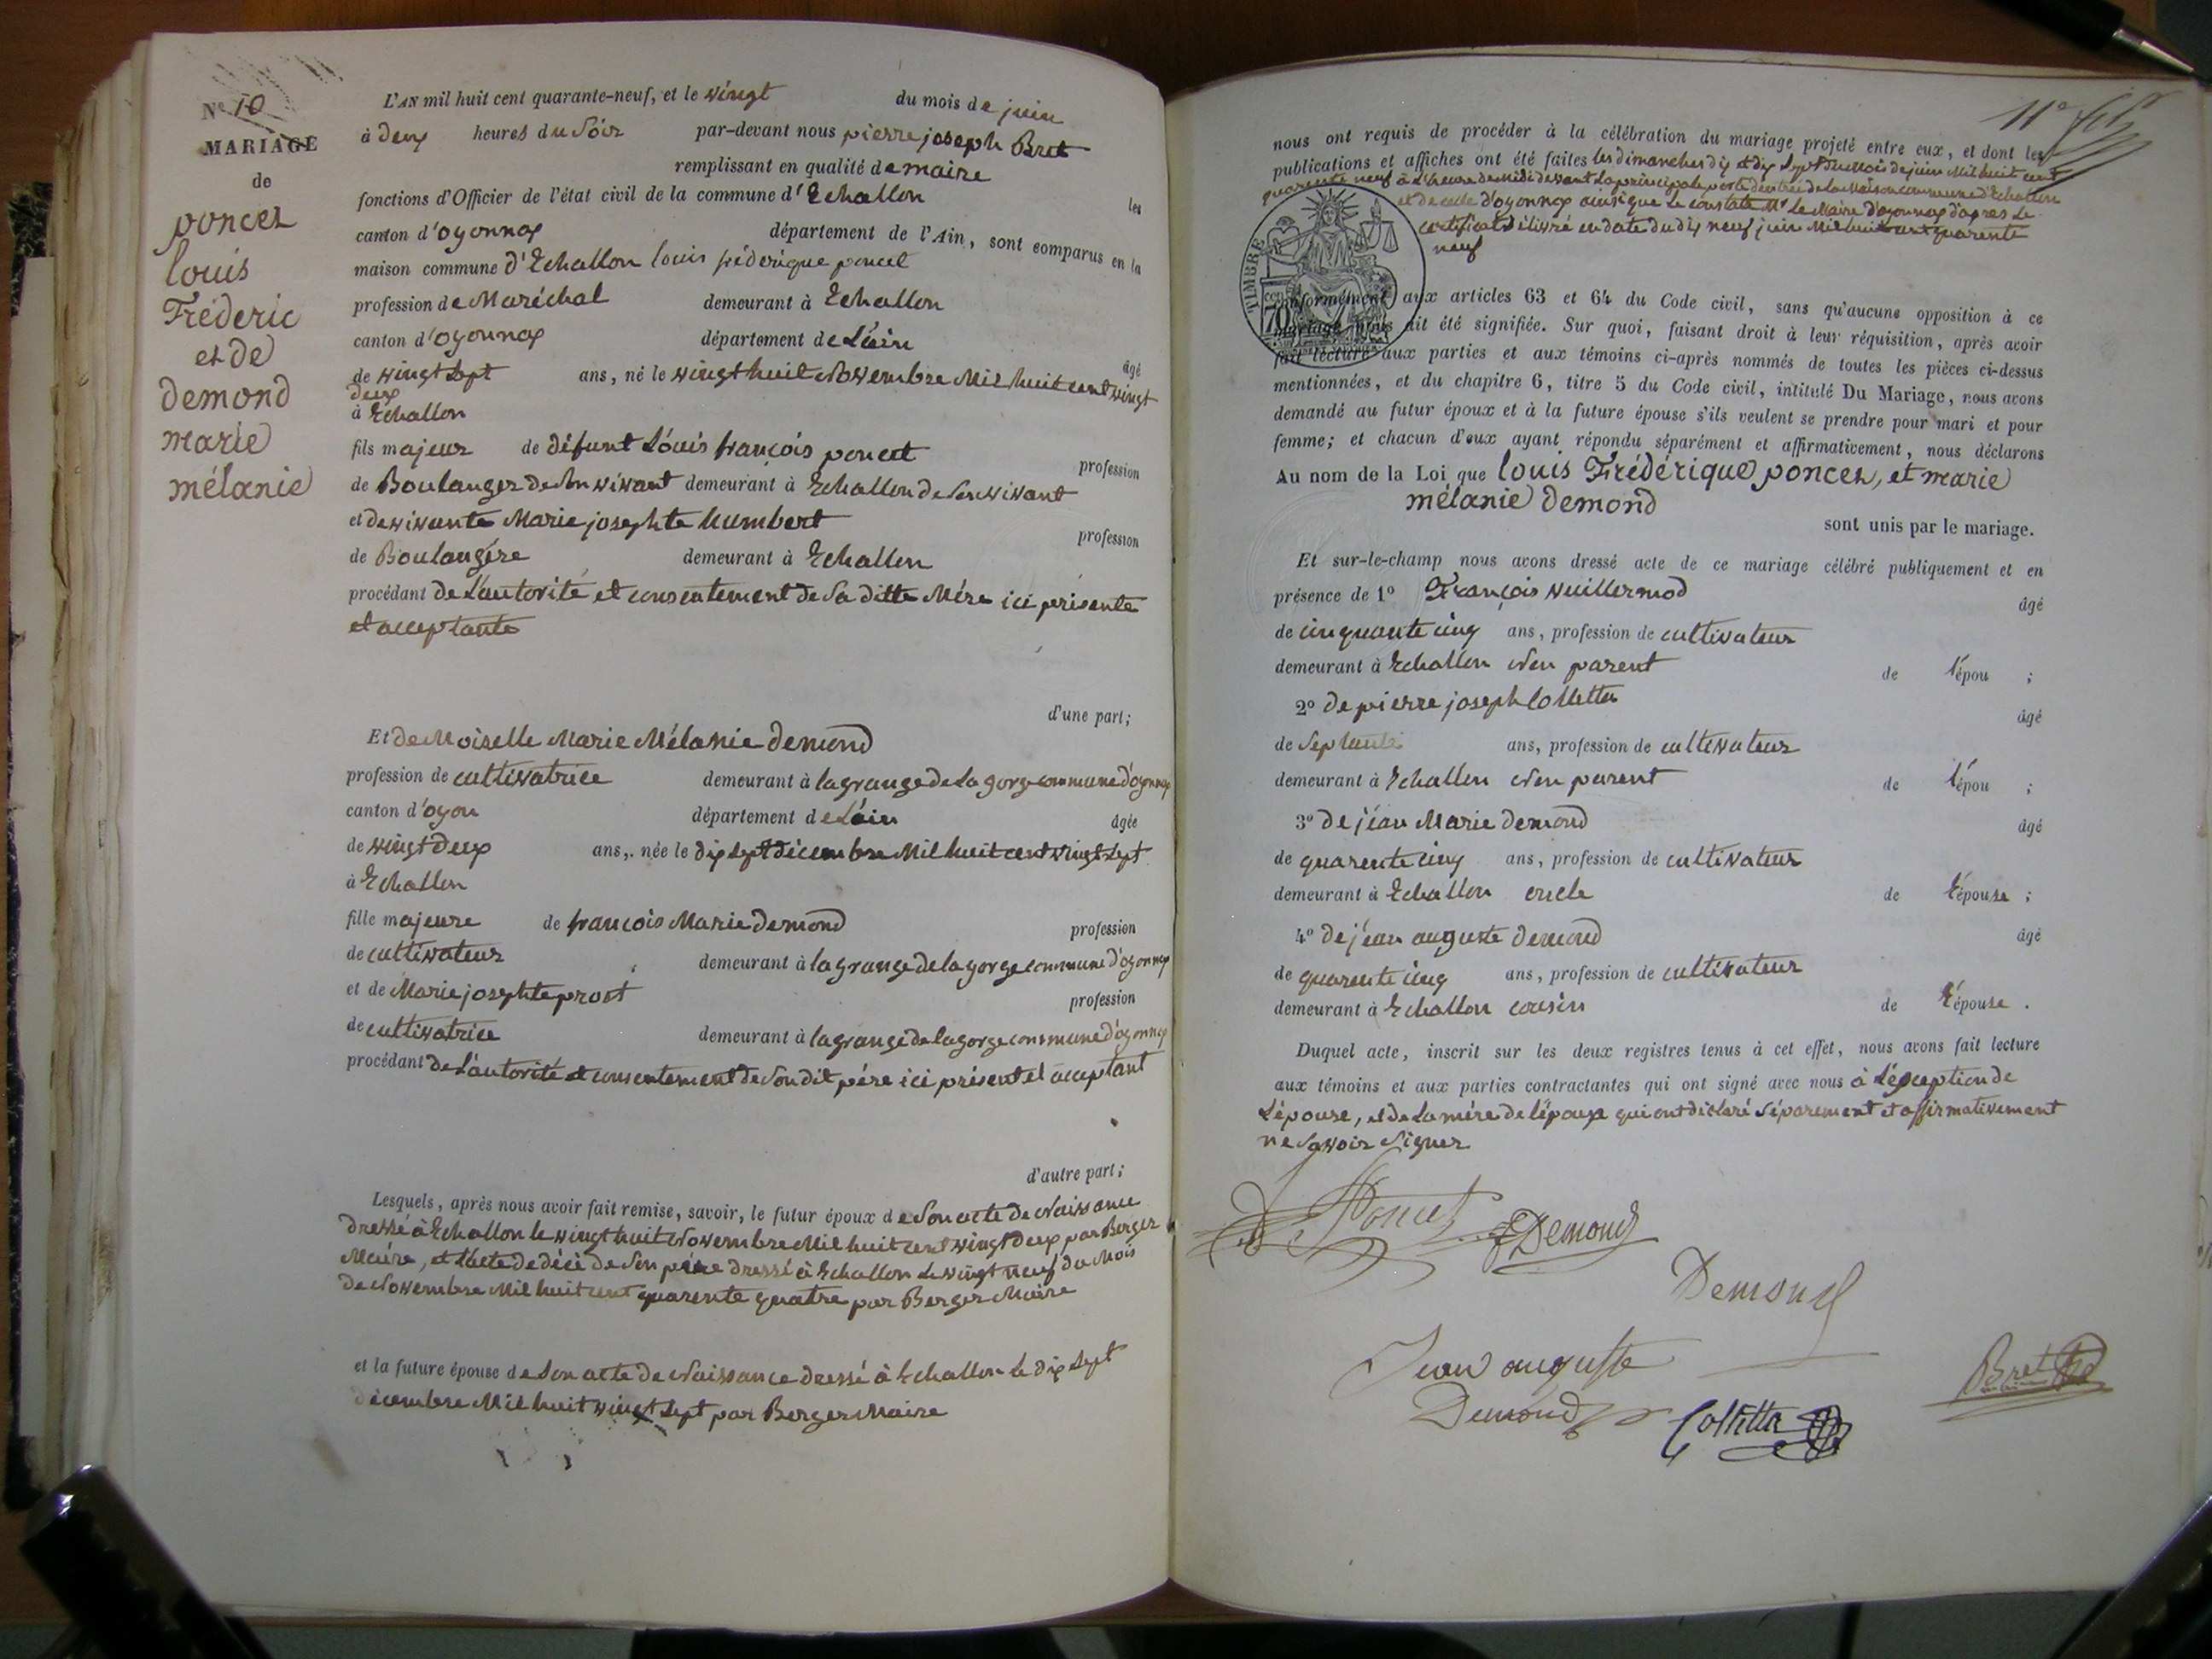 Nº 10
MARIAGE
de
poncet
louis
Fréderic
et de
demond
marie
mélanie
L'AN mil huit cent quarante-neuf, et le vingt du mois de juin
à deux heures du soir par-devant nous pierre joseph Bret
remplissant en qualité de maire les
fonctions d'Officier de l'état civil de la commune d'Echallon
canton d'oyonnax département de l'Ain, sont comparus en la
maison commune d'Echallon louis fréderique poncet
profession de Maréchal demeurant à Echallon
canton d'oyonnax département de L'ain âgé
de vingt sept ans, né le vingt huit Novembre Mil huit cent vingt
deux
à Echallon
fils majeur de défunt Louis françois poncet profession
de Boulanger de son vivant demeurant à Echallon de son vivant
et de vivante Marie josephte humbert profession
de Boulangére demeurant à Echallon
procédant de L'autorité et consentement de sa ditte Mére ici présente
et acceptante
d'une part;
Et deMoiselle Marie Mélanie demond
profession de cultivatrice demeurant à la grange de La gorge commune d'oyonnax
canton d'oyon département de L'ain âgée
de vingt deux ans, née le dix sept décembre Mil huit cent vingt sept
à Echallon
fille majeure de francois Marie demond profession
de cultivateur demeurant à la grange de la gorge commune d'oyonnax
et de Marie josephte prost profession
de cultivatrice demeurant à la grange de la gorge commune d'oyonnax
procédant de L'autorité et consentement de son dit pére ici présent et acceptant
d'autre part;
Lesquels, après nous avoir fait remise, savoir, le futur époux de son acte de Naissance
dressé à Echallon le vingt huit Novembre Mil huit cent vingt deux par Berger
Maire, et L'acte de décé de son pére dressé à Echallon Le vingt neuf du Mois
de Novembre Mil huit cent quarente quatre par Berger Maire
et la future épouse de son acte de Naissance dressé à Echallon le dix sept
décembre Mil huit vingt sept par Berger Maire
11e
nous ont requis de procéder à la célébration du mariage projeté entre eux, et dont les
publications et affiches ont été faites les dimanches dix et dix sept du Mois de juin Mil huit cent
quarente neuf à L'heure de Midi devant la principale porte d'entrée de la Maison commune d'Echallon
et de celle d'oyonnax ainsi que Le constate Mr Le Maire d'oyonnax d'apres Le
certificat délivré en date du dix neuf juin Mil huit cent quarente
neuf
TIMBRE
70
conformément aux articles 63 et 64 du Code civil, sans qu'aucune opposition à ce
mariage nous ait été signifiée. Sur quoi, faisant droit à leur réquisition, après avoir
fait lecture aux parties et aux témoins ci-après nommés de toutes les pièces ci-dessus
mentionnées, et du chapitre 6, titre 5 du Code civil, intitulé Du Mariage, nous avons
demandé au futur époux et à la future épouse s'ils veulent se prendre pour mari et pour
femme; et chacun d'eux ayant répondu séparément et affirmativement, nous déclarons
Au nom de la Loi que louis Frédérique poncet, et marie
mélanie demond
sont unis par le mariage.
Et sur-le-champ nous avons dressé acte de ce mariage célébré publiquement et en
présence de 1º François vuillermod âgé
de cinquante cinq ans, profession de cultivateur
demeurant à Echallon Non parent de l'épou ;
2º de pierre joseph Colletta âgé
de Septante ans, profession de cultivateur
demeurant à Echallon Non parent de l'épou ;
3º de jéan Marie demond âgé
de quarente cinq ans, profession de cultivateur
demeurant à Echallon oncle de L'épouse ;
4º de jéan auguste demond âgé
de quarente cinq ans, profession de cultivateur
demeurant à Echallon cousin de L'épouse .
Duquel acte, inscrit sur les deux registres tenus à cet effet, nous avons fait lecture
aux témoins et aux parties contractantes qui ont signé avec nous à L'éxception de
L'épouse, et de La mére de l'époux qui ont déclaré séparement et affirmativement
ne savoir signer
Poncet
Demond
Demond
Jean auguste
Demond
Colletta
Bret